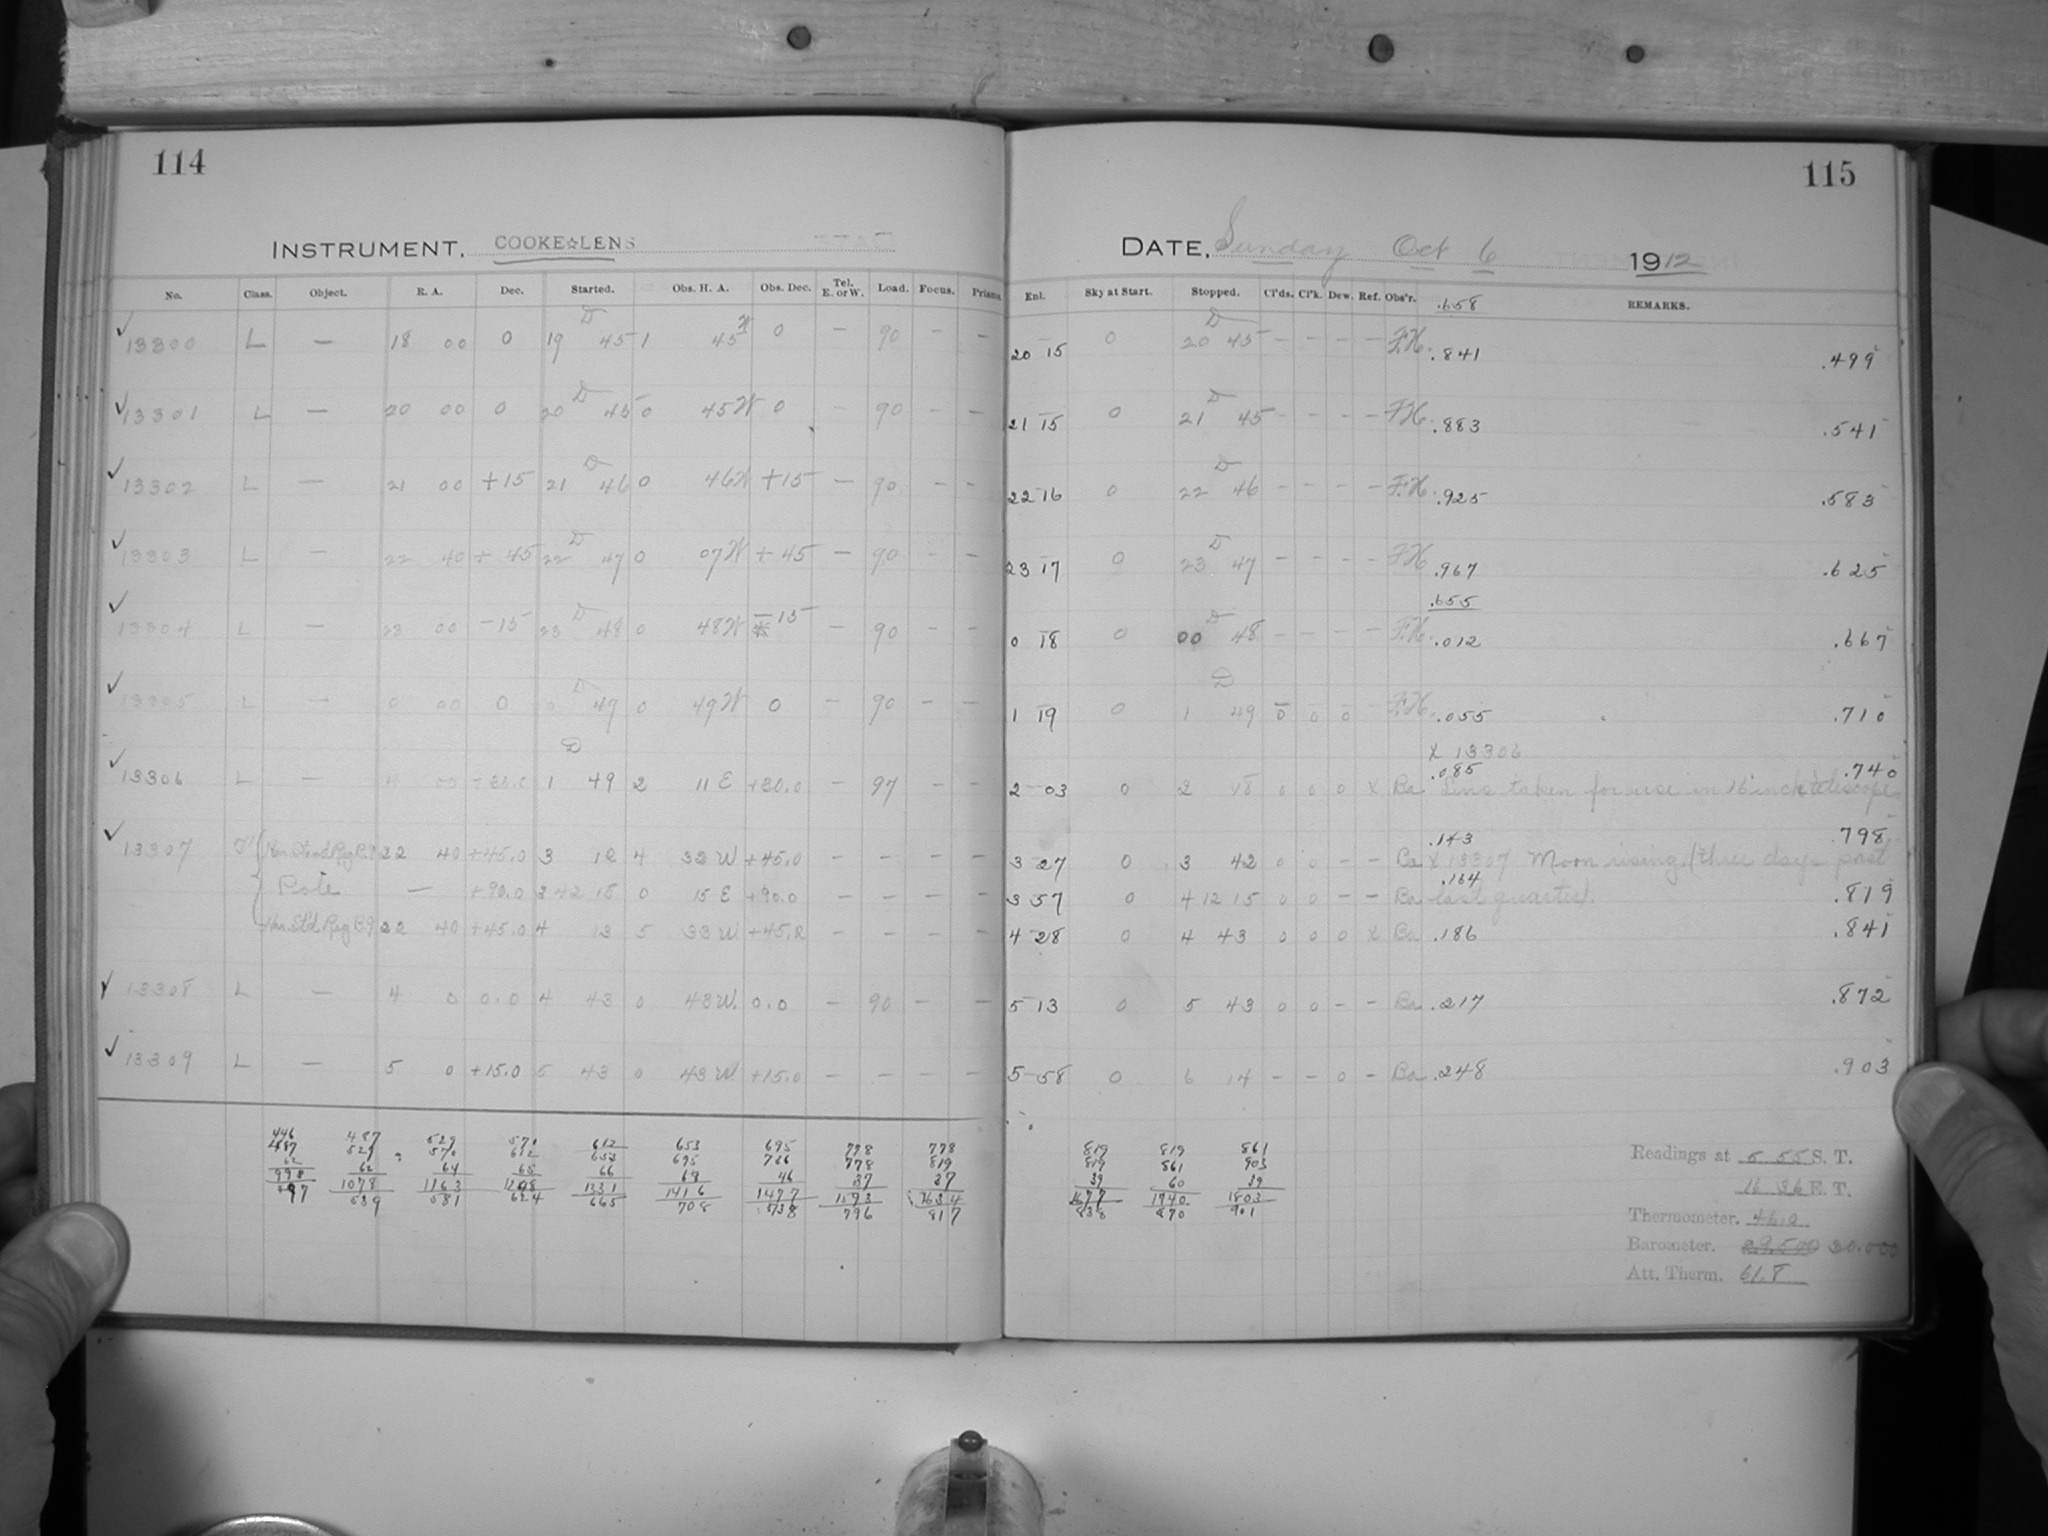 114
INSTRUMENT. COOKE☆LENS
No. Class. Object. R. A. Dec. Started. Obs. H. A. Obs. Dec. Tel. E. or W. Load. Focus. Prisms
✓ 13300 L — 18 00 0 19 D 45 1 45 W 0 — 90 — —
✓ 13301 L — 20 00 0 20 D 45 0 45 W 0 — 90 — —
✓ 13302 L — 21 00 +15 21 D 46 0 46 W +15 — 90 — —
✓ 13303 L — 22 40 + 45 22 D 47 0 07 W + 45 — 90 — —
✓ 13304 L — 23 00 -15 23 D 48 0 48 W 15 — 90 — —
✓ 13305 L — 0 00 0 D 49 0 49 W 0 — 90 — —
✓ 13306 L — 00 +30.0 1 D 49 2 11 E +30.0 — 97 — —
✓ 13307 Har. Stand Reg B.9 22 40 +45.0 3 12 4 32 W +45.0 — — — — —
Pole — +90.0 3 42 15 0 15 E +90.0 — — — — —
Har. St'd Reg B.9 22 40 +45.0 4 13 5 33 W +45.0 — — — — —
✓ 13308 L — 4 0 0.0 4 43 0 43 W. 0.0 — 90 — —
✓ 13309 L — 5 0 +15.0 5 43 0 43 W +15.0 — — — —
446 487 529 570 612 653 695 778 778
487 529 570 612 653 695 736 778 819
62 62 64 65 66 68 46 37 37
998 1078 1163 1248 1331 1416 1477 1593 1634
497 539 581 624 665 708 738 796 817
115
DATE, Sunday Oct 6 1912
Enl. Sky at Start. Stopped. Cl'ds. Cl'k. Dew. Ref. Obs'r. .658 REMARKS.
20 15 0 20 D 45 — — — — F.H. .841 .499
21 15 0 21 D 45 — — — — F.H. .883 .541
22 16 0 22 D 46 — — — — F.H. .925 .583
23 17 0 23 D 47 — — — — F.H. .967 .625
.655
0 18 0 00 D 48 — — — — F.H. .012 .667
1 19 0 1 D 49 0 0 0 — F.H. .055 .710
X 13306
.085 .740
2 03 0 2 18 0 0 0 X Ba Lens taken for use in 16 inch telescope.
.143 .798
3 27 0 3 42 0 0 — — Ba X 13307 Moon rising. (three days past
.164
3 57 0 4 12 15 0 0 — — Ba last quarter). .819
4 28 0 4 43 0 0 0 X Ba .186 .841
5 13 0 5 43 0 0 — — Ba .217 .872
5 58 0 6 14 — — 0 — Ba .248 .903
819 819 861
819 861 903
39 60 39
1677 1740 1803
838 870 901
Readings at 5 55 S. T.
16 36 E. T.
Thermometer. 46.2
Barometer. 29.500 30.000
Att. Therm. 61.8